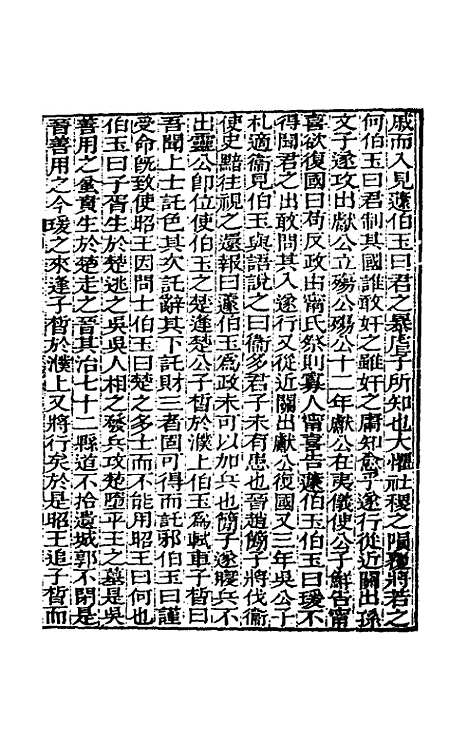 戚而入見蘧伯玉曰君之暴虐子所知也大懼社稷之隕稷將若之
何伯玉曰君制其國誰敢奸之雖奸之庸知愈乎遂行從近關出孫
文子遂攻出獻公立殤公殤公十二年獻公在夷儀使公子鮮告甯
喜欲復國曰苟反政由甯氏祭則寡人甯喜告蘧伯玉伯玉曰瑗不
得聞君之出敢問其入遂行又從近關出獻公復國又三年吳公子
札適衞見伯玉與語說之曰衞多君子未有患也晉趙簡子將伐衞
使史黯往視之還報曰蘧伯玉為政未可以加兵也簡子遂寢兵不
出靈公卽位使伯玉之楚逢楚公子晳於濮上伯玉為軾車子晳曰
吾聞上士託色其次託辭其下託財三者固可得而託邪伯玉曰謹
受命旣致使昭王因問士伯玉曰楚之多士而不能用昭王曰何也
伯玉曰子胥生於楚逃之吳吳人相之發兵攻楚墮平王之墓是吳
善用之蚠黃生於楚走之晉其治七十二縣道不拾遺城郭不閉是
晉善用之今瑗之來逢子晳於濮上又將行矣於是昭王追子晳而